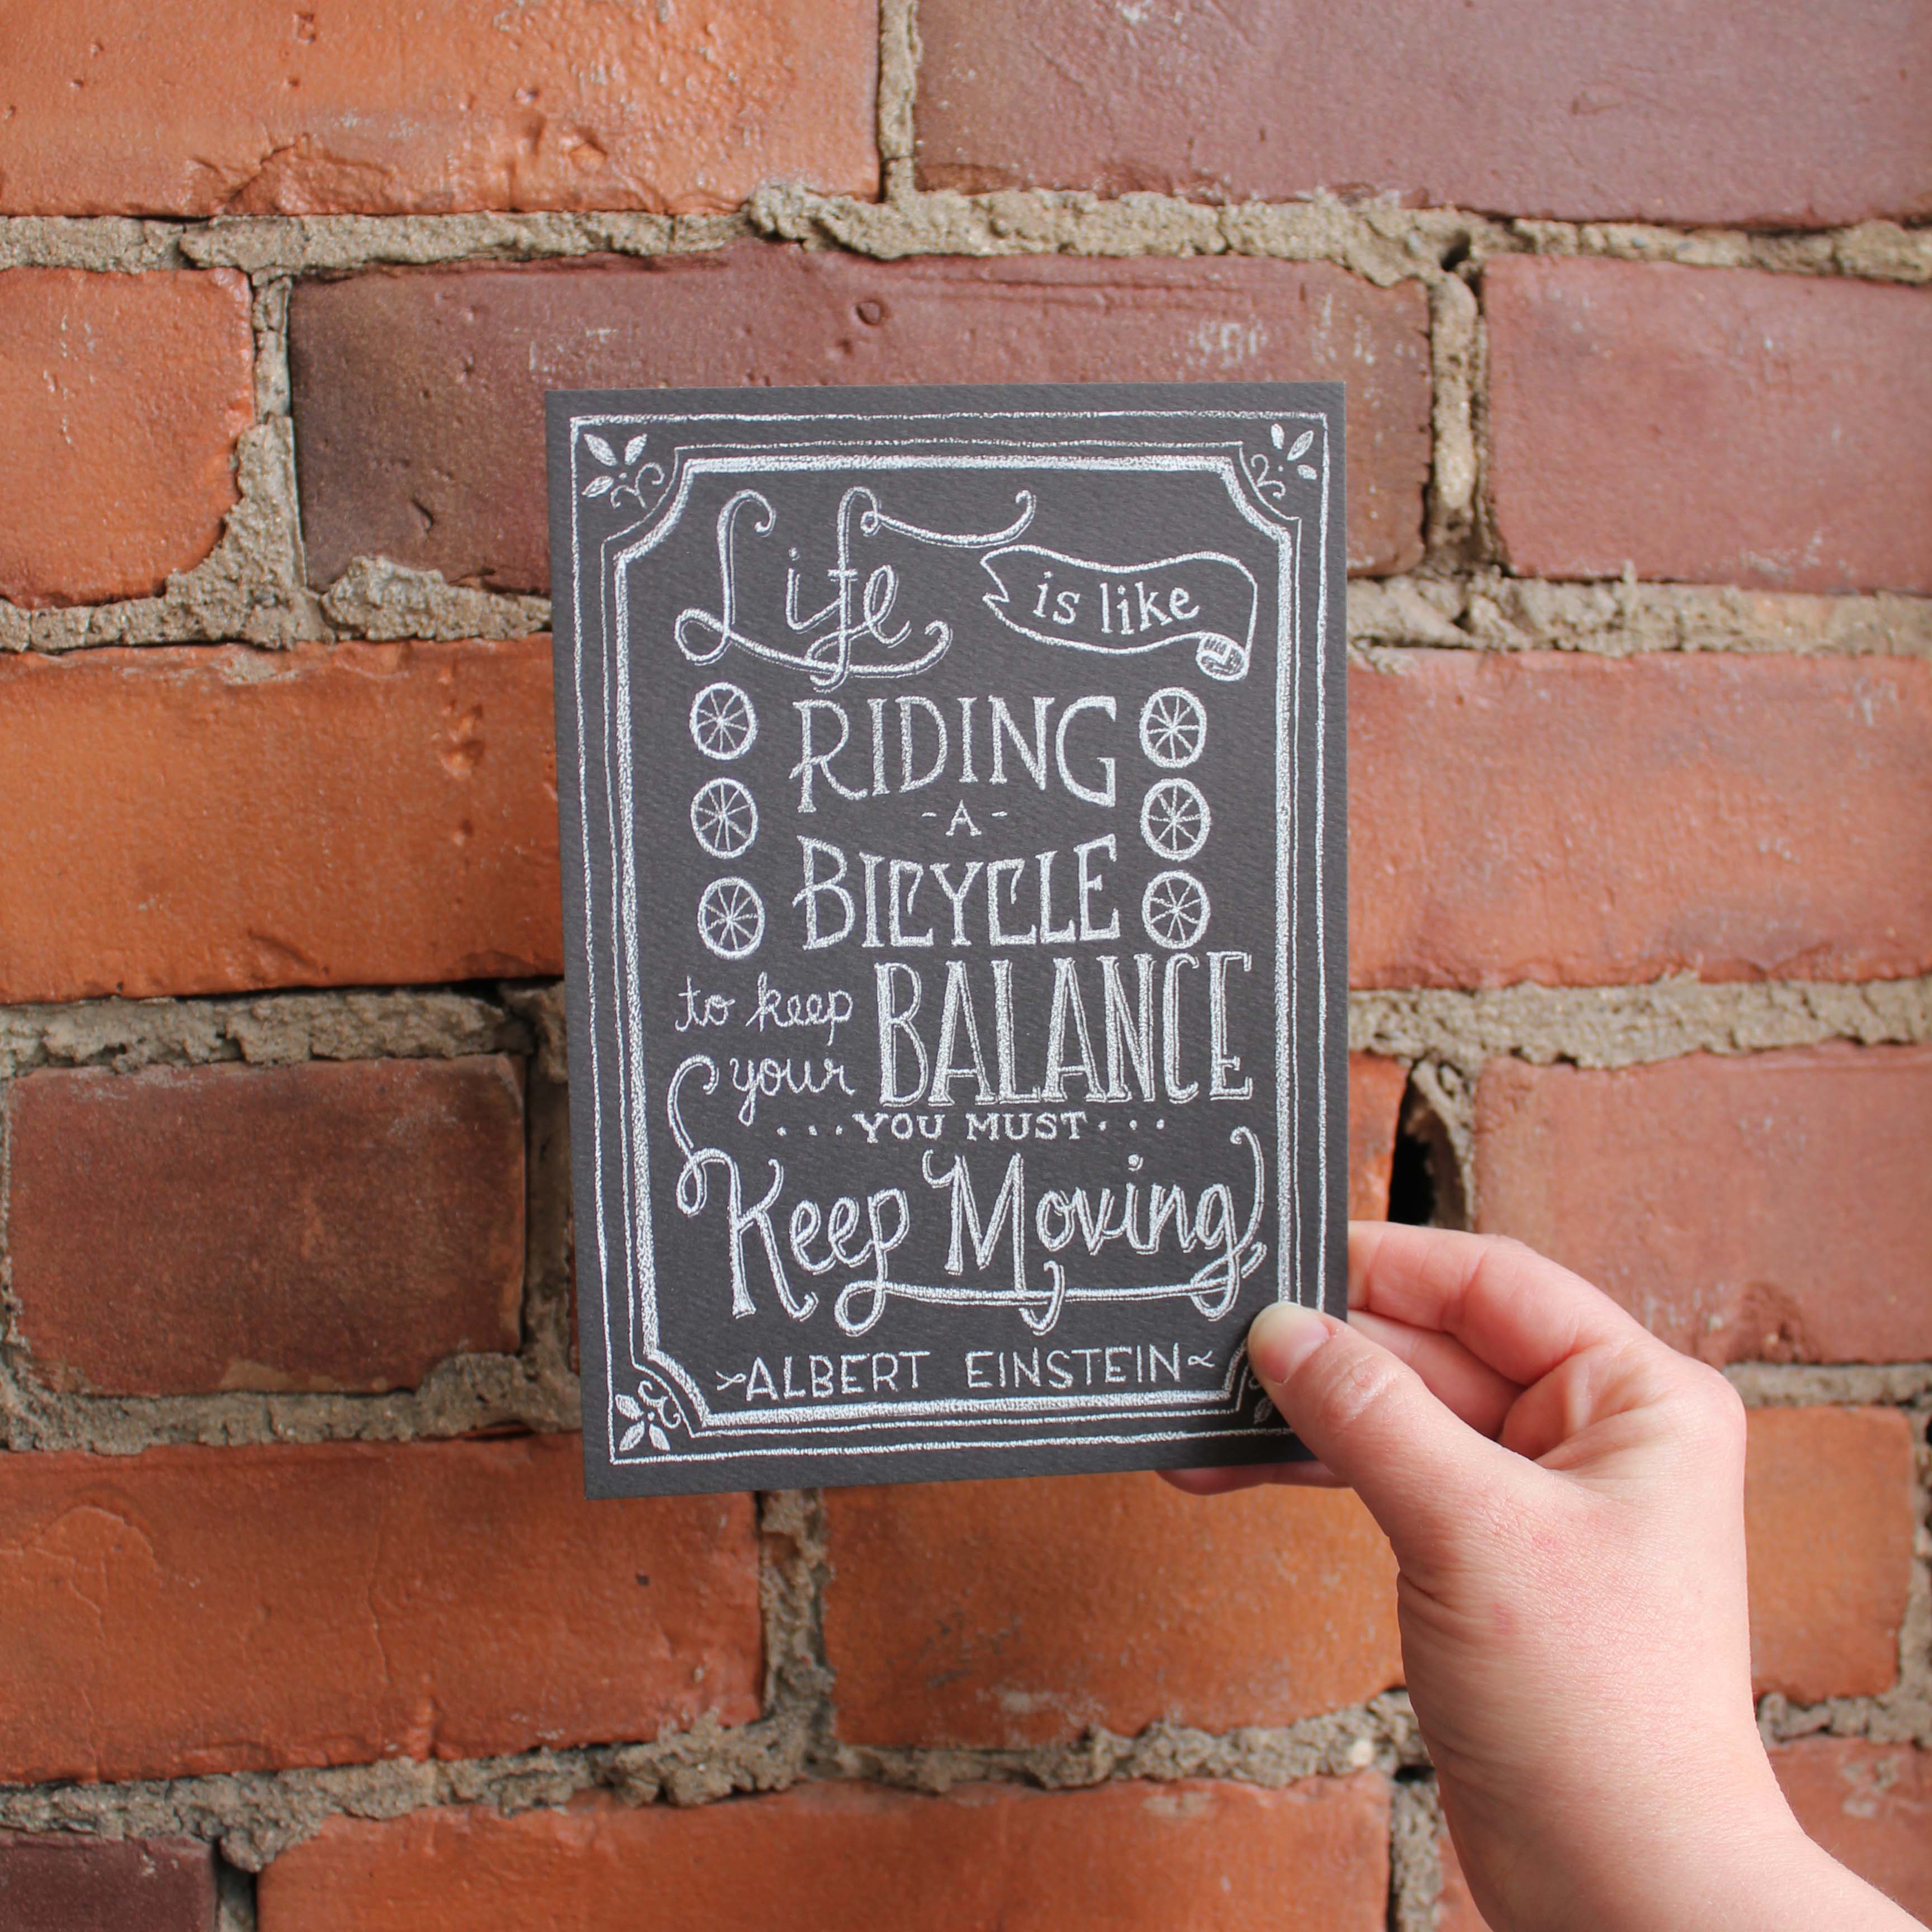 Life is like
RIDING
-A-
BICYCLE
to keep your BALANCE
...YOU MUST...
Keep Moving
ALBERT EINSTEIN